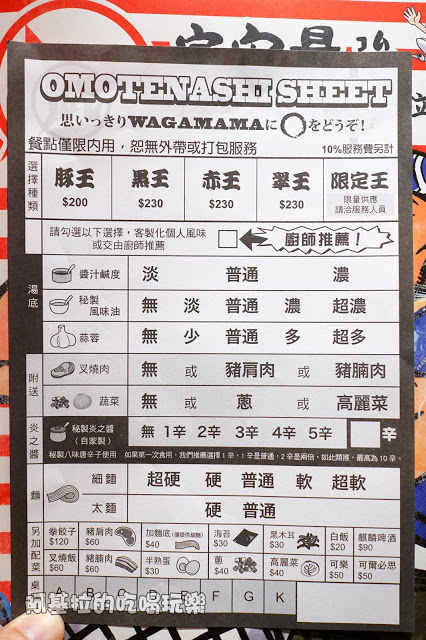 OMOTENASHI SHEET
思いっきりWAGAMAMAに〇をどうぞ!
餐點僅限内用，恕無外帶或打包服務 10%服務費另計
選擇種類 豚王 $200 黑王 $230 赤王 $230 翠王 $230 限定王 限量供應 請洽服務人員
請勾選以下選擇，客製化個人風味
或交由廚師推薦
廚師推薦!
湯底
醬汁鹹度 淡 普通 濃
秘製風味油 無 淡 普通 濃 超濃
蒜蓉 無 少 普通 多 超多
附送
叉燒肉 無 或 豬肩肉 或 豬腩肉
蔬菜 無 或 蔥 或 高麗菜
炎之醬
秘製炎之醬（自家製） 無 1辛 2辛 3辛 4辛 5辛 辛
秘製八味唐辛子使用 如果第一次食用，我們推薦選擇1辛，1辛是普通，2辛是兩倍，如此類推，最高為10辛。
麵
細麵 超硬 硬 普通 軟 超軟
太麵 硬 普通
另加配菜
拳餃子 $120 豬肩肉 $60 加麵底 $40 海苔 $30 黑木耳 $30 白飯 $20 麒麟啤酒 $90
叉燒飯 $60 豬腩肉 $60 半熟蛋 $30 蔥 $40 高麗菜 $40 可樂 $50 可爾必思 $50
桌 A B C D E F G K
阿基拉的吃喝玩樂